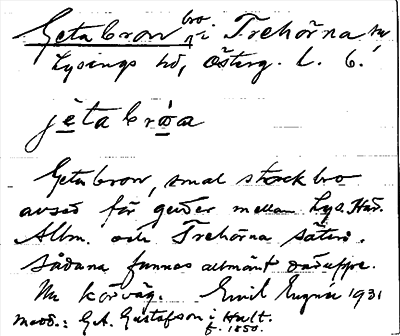 Getabron bro i Trehörna sn
Lysings hd, Österg. l. 6.
jètabróa
Getabron, smal stockbro
avsed för getter mellan Lys. Här.
Allm. och Trehörna säteri.
Sådana funnos allmänt däruppe.
Nu körväg. Emil 1931
Medd.: G.A. Gustafson i Hult.
f. 1850.